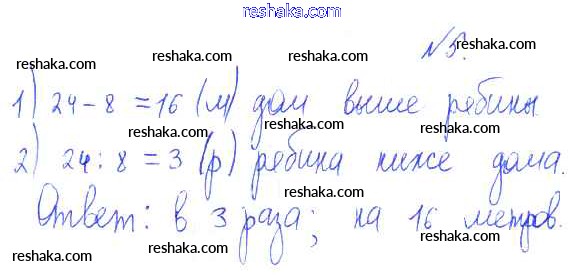 reshaka.com
reshaka.com
№5.
reshaka.com
reshaka.com
1) 24-8=16 (м) дом выше рябины
reshaka.com
reshaka.com
2) 24:8=3 (р) рябина ниже дома.
reshaka.com
reshaka.com
Ответ: в 3 раза; на 16 метров.
reshaka.com
reshaka.com
reshaka.com